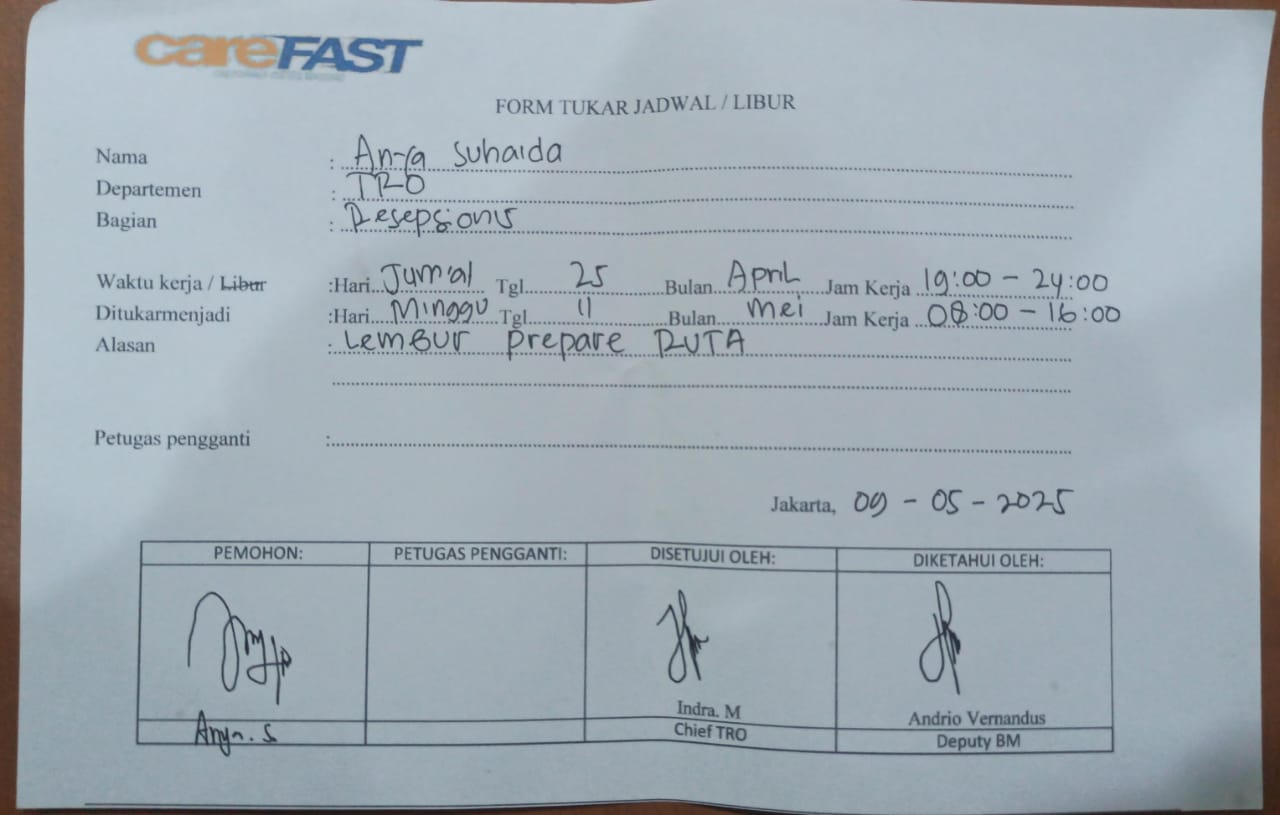 careFAST
FORM TUKAR JADWAL / LIBUR
Nama : Suhaida
Departemen : TRO
Bagian : Resepsionis
Waktu kerja / Libur :Hari Jum'at Tgl 25 Bulan April Jam Kerja 19:00 - 24:00
Ditukarmenjadi :Hari Minggu Tgl 11 Bulan Mei Jam Kerja 08:00 - 16:00
Alasan : Lembur prepare RUTA
Petugas pengganti :
Jakarta, 09 - 05 - 2025
PEMOHON: PETUGAS PENGGANTI: DISETUJUI OLEH: DIKETAHUI OLEH:
Indra. M Andrio Vernandus
S Chief TRO Deputy BM